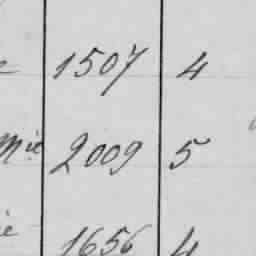 1507 4
Mie 2009 5
ie 1656 4